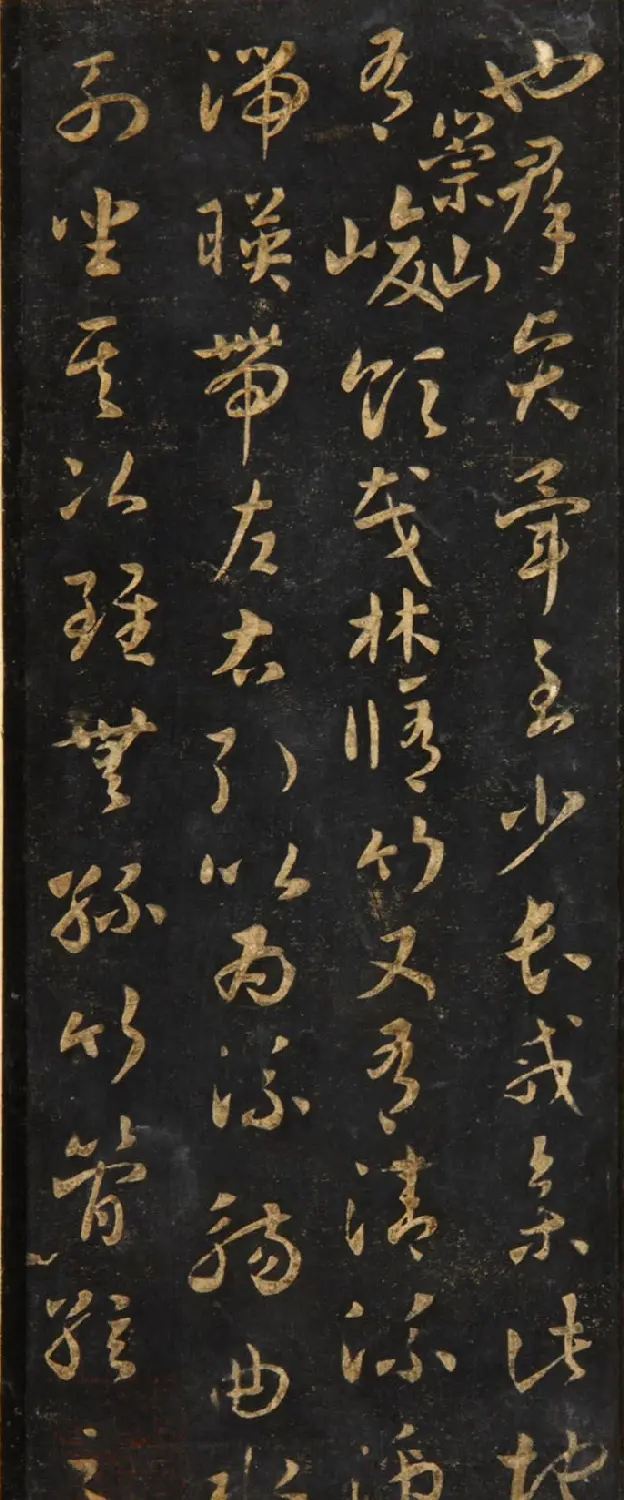 也群賢畢至少長咸集此地
有崇山峻領茂林脩竹又有清流激
湍暎帶左右引以為流觴曲水
列坐其次雖無絲竹管絃之